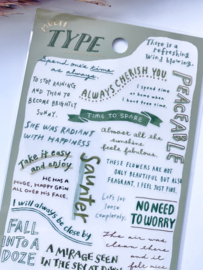 TYPE
Spend one's time
as always.
There is a
refreshing
wind blowing.
ALWAYS CHERISH YOU
PEACEABLE
TO STOP RAINING
AND THEN TO
BECOME BRIGHTLY
SUNNY.
I spend time
at home when
I have free time.
TIME TO SPARE
SHE WAS RADIANT
WITH HAPPINESS
Almost all the
sunshine
feels fabulous.
Take it easy
and enjoy
Saunter
THESE FLOWERS ARE NOT
ONLY BEAUTIFUL BUT ALSO
FRAGRANT, I FEEL JUST FINE.
HE HAS A
HUGE, HAPPY GRIN
ALL OVER HIS FACE.
Let's get
loose
completely.
NO NEED
TO WORRY
I will always be close by
FALL
INTO A
DOZE
The air
was
clean
and it
A MIRAGE SEEN
IN THE SKY AT DAWN